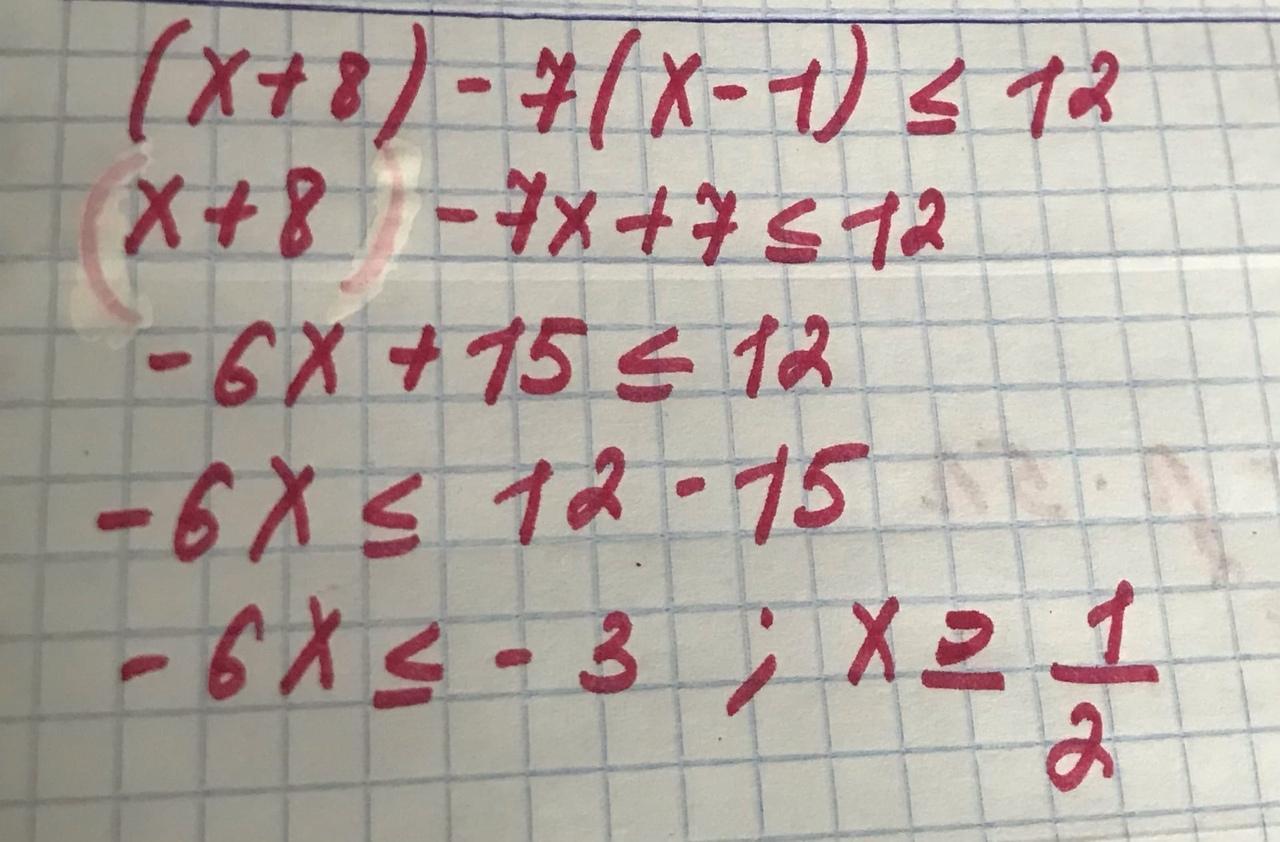 (x+8)-7(x-1) ≤ 12
(x+8)-7x+7 ≤ 12
-6x+15 ≤ 12
-6x ≤ 12-15
-6x ≤ -3 ; x ≥ 1/2